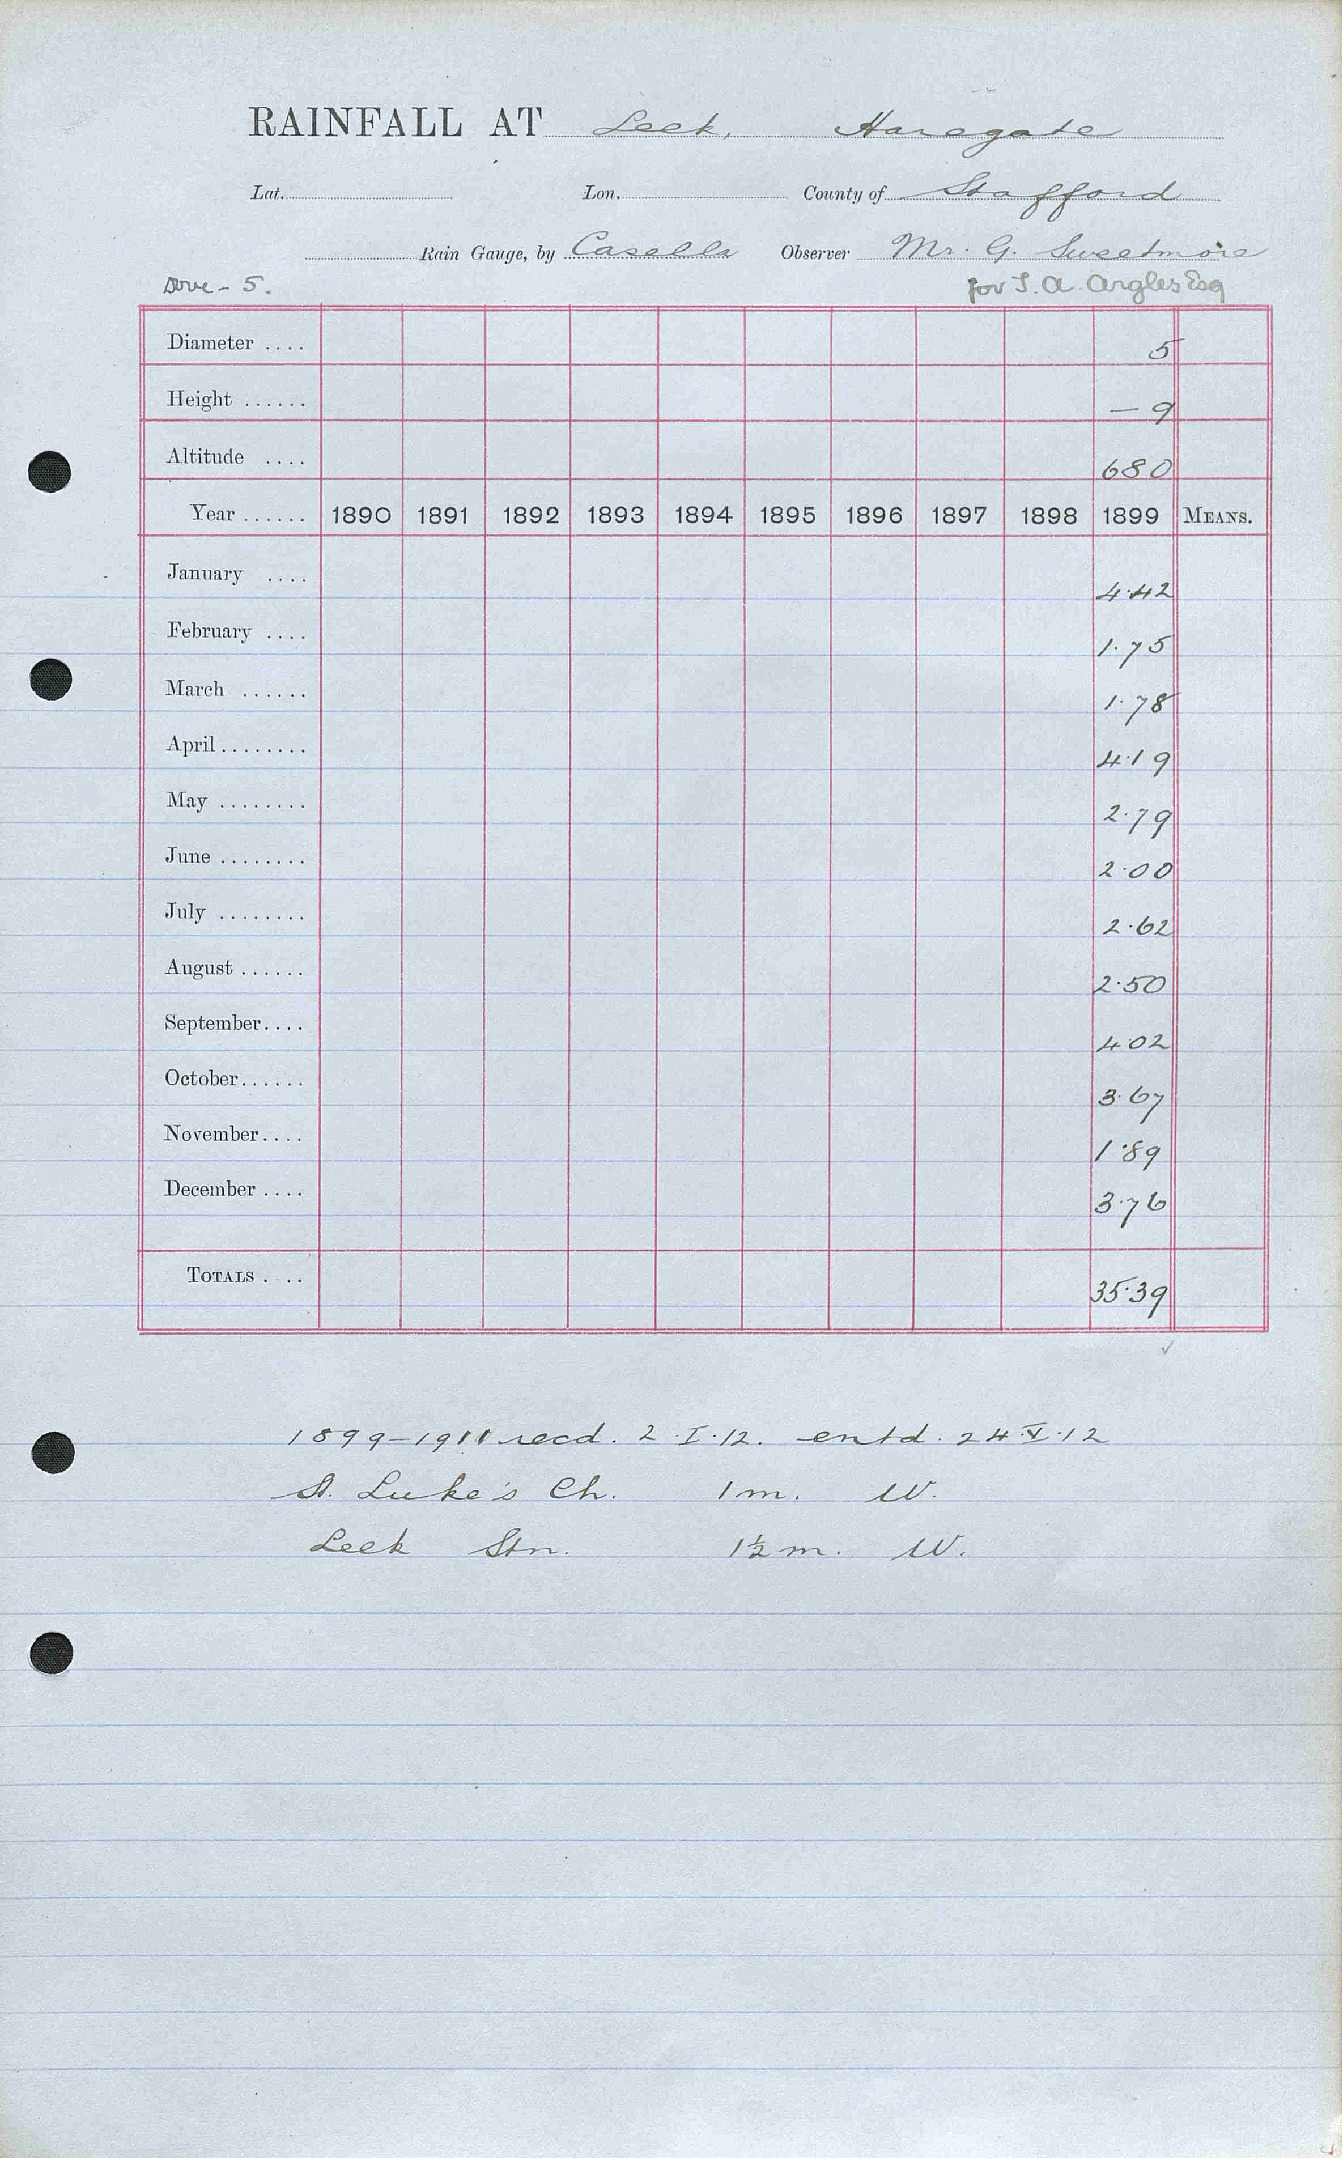 RAINFALL AT Leek, Haregate
Lat. Lon. County of Stafford
Rain Gauge, by Casella Observer Mr. G. Sweetmore
Dove - 5. for T. A. Argles Esq
Diameter .... 5
Height ...... — 9
Altitude .... 680
Year ...... 1890 1891 1892 1893 1894 1895 1896 1897 1898 1899 MEANS.
January .... 4.42
February .... 1.75
March ...... 1.78
April ........ 4.19
May ........ 2.79
June ........ 2.00
July ........ 2.62
August ...... 2.50
September .... 4.02
October ...... 3.67
November .... 1.89
December .... 3.76
TOTALS .... 35.39
✓
1899-1911 recd. 2.I.12. entd. 24.V.12
St. Luke's Ch. 1 m. W.
Leek Stn. 1½ m. W.